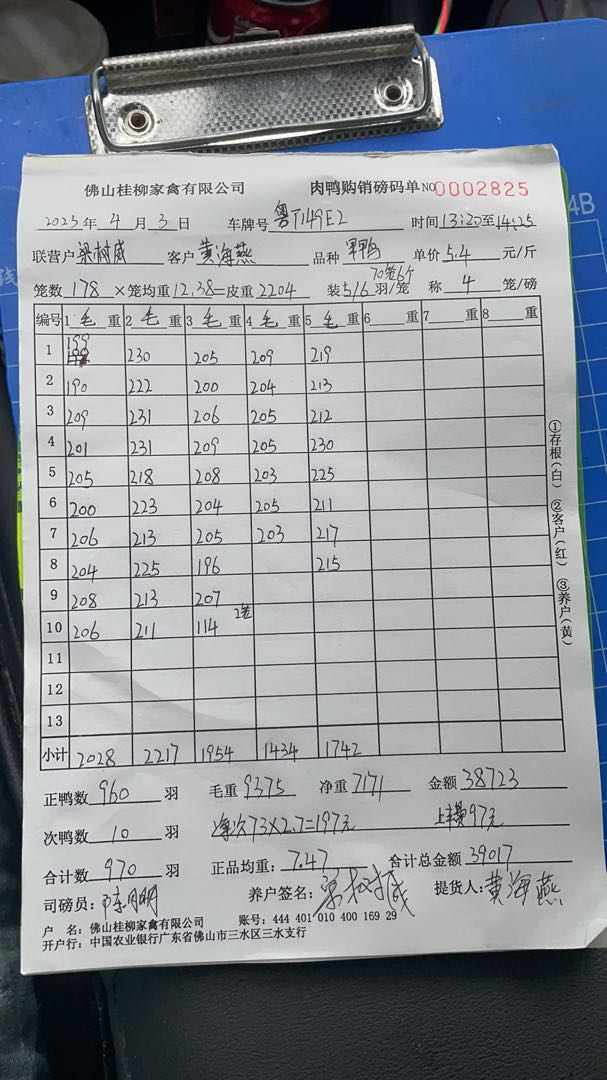 佛山桂柳家禽有限公司 肉鸭购销磅码单 NO 0002825
2023年 4月 3日 车牌号 粤T149E2 时间 13:20至14:25
联营户 梁树威 客户 黄海燕 品种 甲鸭 单价 5.4 元/斤
70笼6个
笼数 178 ×笼均重 12.38=皮重 2204 装 5/6 羽/笼 称 4 笼/磅
编号 1 毛 重 2 毛 重 3 毛 重 4 毛 重 5 毛 重 6 重 7 重 8 重
1 199 230 205 209 219
2 190 222 200 204 213
3 209 231 206 205 212
4 201 231 209 205 230
5 205 218 208 203 225
6 200 223 204 205 211
7 206 213 205 203 217
8 204 225 196 215
9 208 213 207
10 206 211 114 2笼
11
12
13
小计 2028 2217 1954 1434 1742
正鸭数 960 羽 毛重 9375 净重 7171 金额 38723
次鸭数 10 羽 73×2.7=197元 97元
合计数 970 羽 正品均重: 7.47 合计总金额 39017
司磅员: 养户签名: 梁树威 提货人: 黄海燕
户 名: 佛山桂柳家禽有限公司 账号: 444 401 010 400 169 29
开户行: 中国农业银行广东省佛山市三水区三水支行
①存根(白) ②客户(红) ③养户(黄)
4B